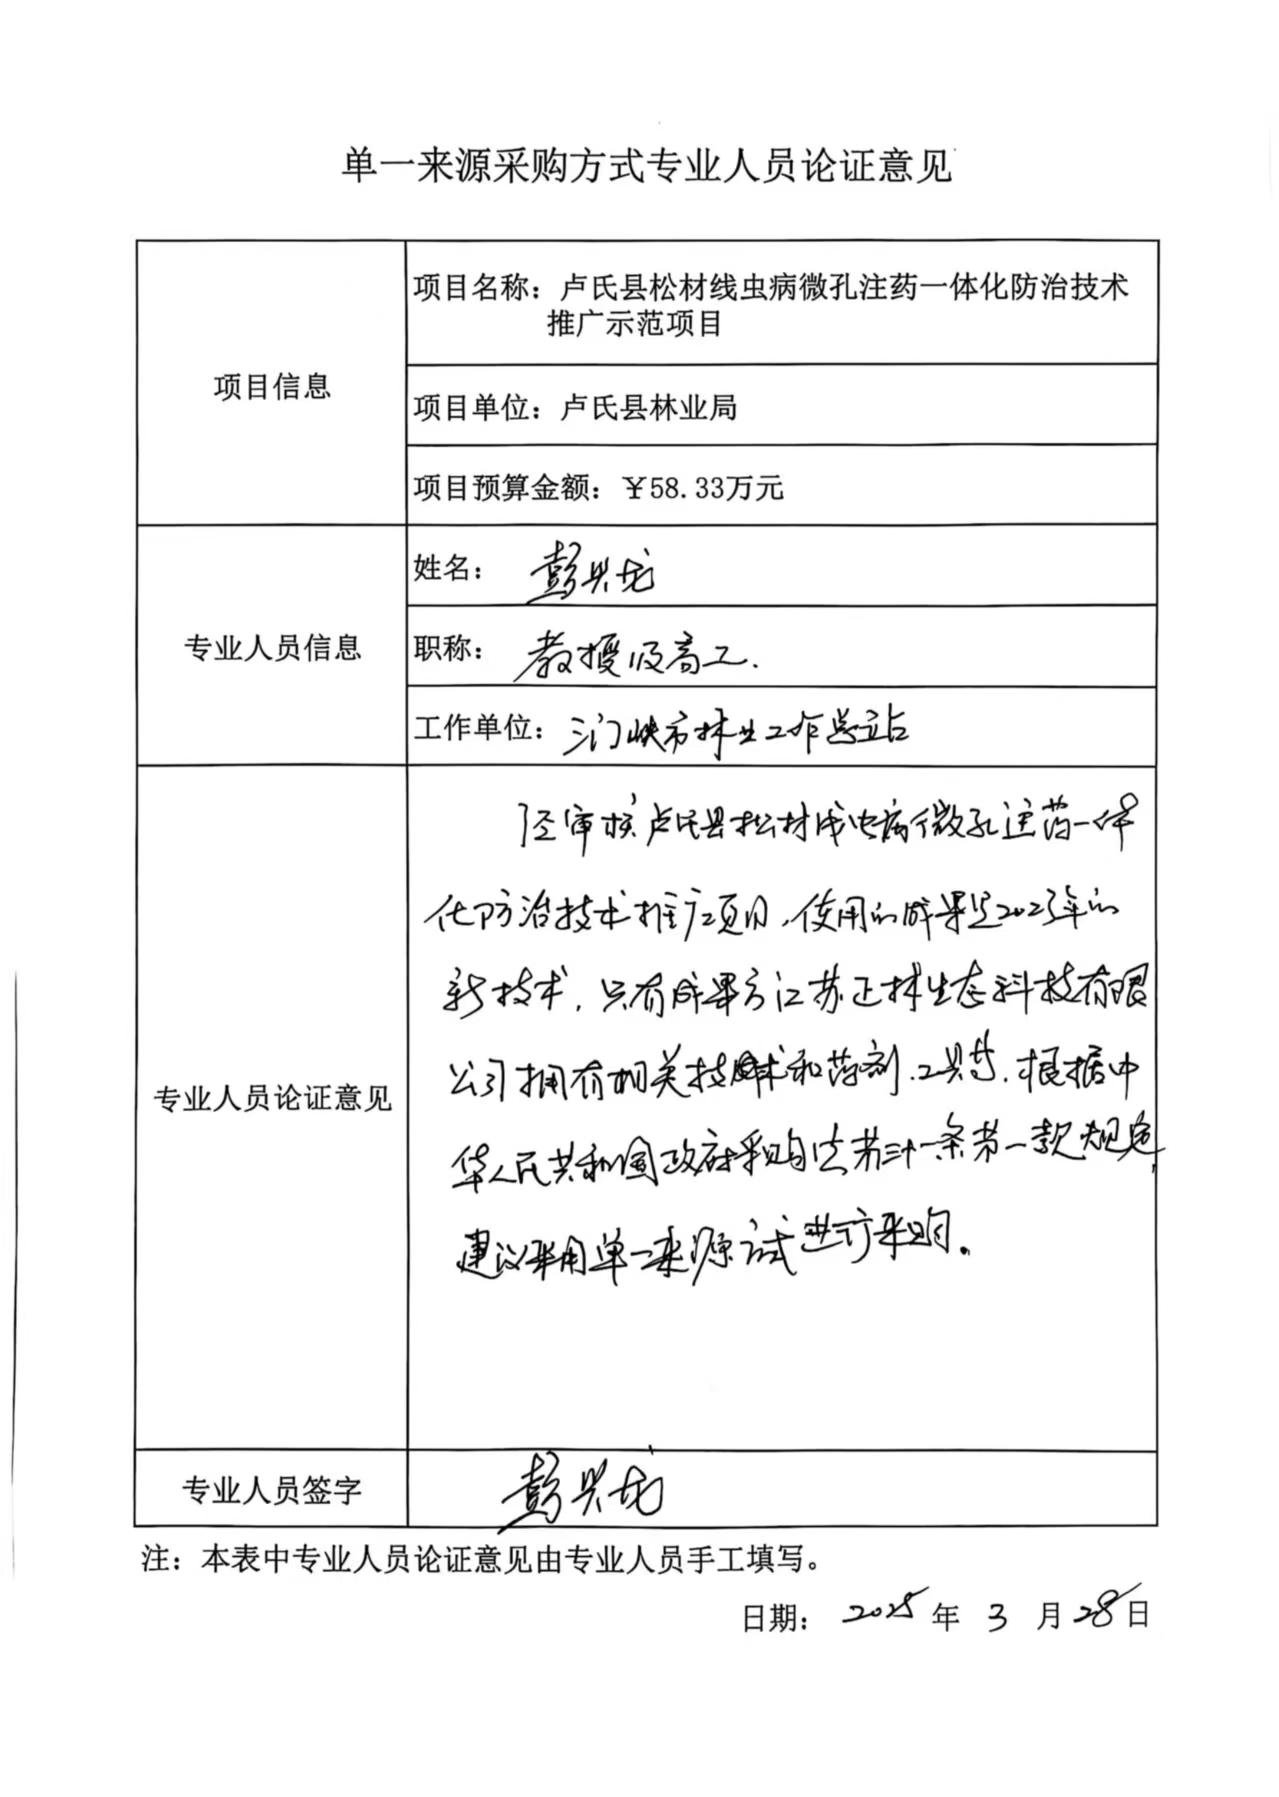 单一来源采购方式专业人员论证意见
项目信息
项目名称：卢氏县松材线虫病微孔注药一体化防治技术
推广示范项目
项目单位：卢氏县林业局
项目预算金额：￥58.33万元
专业人员信息
姓名：彭兴龙
职称：教授级高工.
工作单位：三门峡市林业工作总站
专业人员论证意见
经审核卢氏县松材线虫病微孔注药一体
化防治技术推广项目，使用的成果是2023年的
新技术，只有成果方江苏正林生态科技有限
公司拥有相关技术和药剂、工具等，根据中
华人民共和国政府采购法第三十一条第一款规定，
建议采用单一来源式进行采购。
专业人员签字
彭兴龙
注：本表中专业人员论证意见由专业人员手工填写。
日期：2025年3月28日